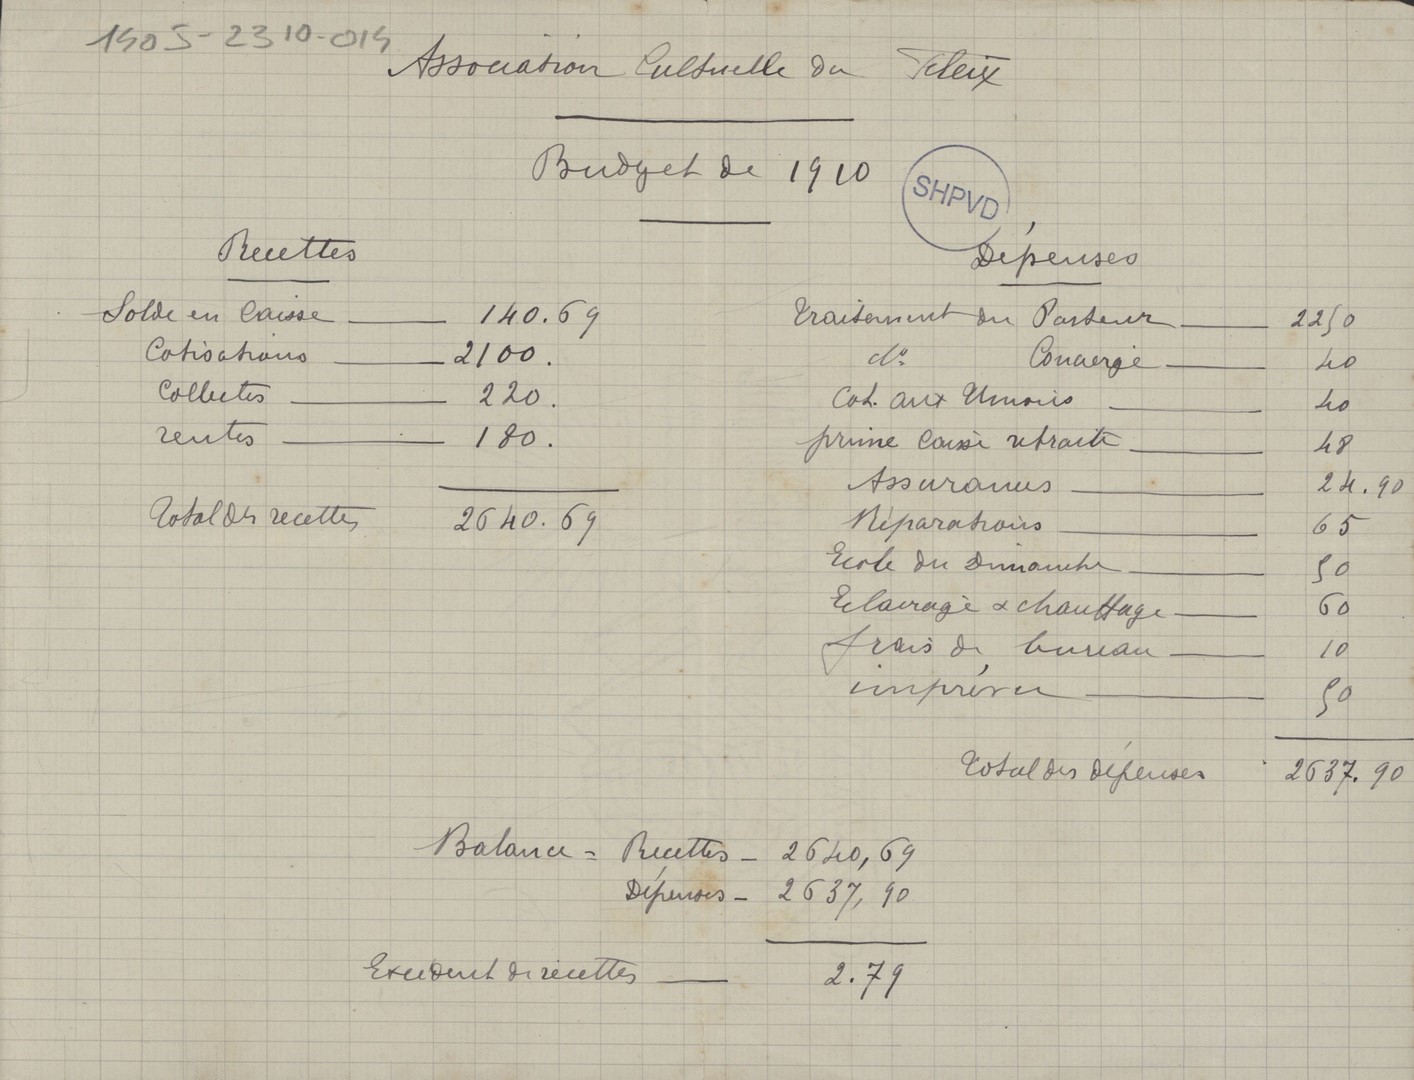 1905-2310-019
Association Cultuelle du Fleix
Budget de 1910
SHPVD
Recettes
Solde en Caisse 140.69
Cotisations 2100.
Collectes 220.
rentes 180.
Total des recettes 2640.69
Dépenses
Traitement du Pasteur 2250
do Concierge 40
Cot. aux Unions 40
prime Caisse retraite 48
Assurances 24.90
Réparations 65
Ecole du Dimanche 50
Eclairage & chauffage 60
frais de bureau 10
imprévu 50
Total des dépenses 2637.90
Balance = Recettes - 2640,69
Dépenses - 2637,90
Excédent de recettes 2.79